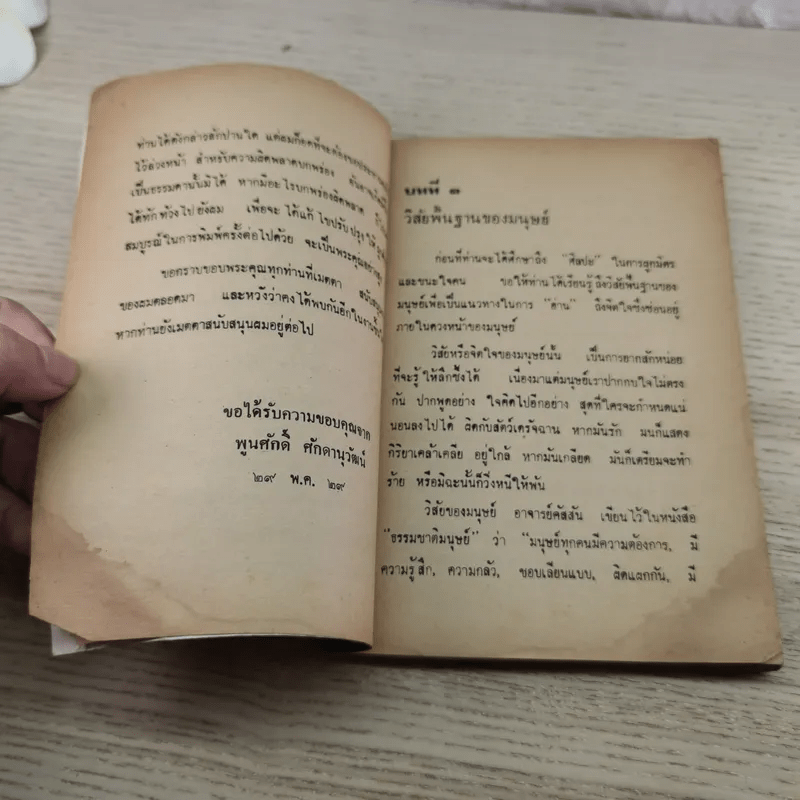 ท่านได้ดังกล่าวสักปานใด แต่ผมก็อดที่จะต้อง
ไว้ล่วงหน้า สำหรับความผิดพลาดบกพร่อง อันอาจ
เป็นธรรมดานั้นมิได้ หากมีอะไรบกพร่องผิดพลาด
ได้ทักท้วงไปยังผม เพื่อจะได้แก้ไขปรับปรุงให้
สมบูรณ์ในการพิมพ์ครั้งต่อไปด้วย จะเป็นพระคุณ
ขอกราบขอบพระคุณทุกท่านที่เมตตา
ของผมตลอดมา และหวังว่าคงได้พบกันอีกในงาน
หากท่านยังเมตตาสนับสนุนผมอยู่ต่อไป
ขอได้รับความขอบคุณจาก
พูนศักดิ์ ศักดานุวัฒน์
๒๙ พ.ค. ๒๙
บทที่ ๑
วิสัยพื้นฐานของมนุษย์
ก่อนที่ท่านจะได้ศึกษาถึง "ศิลปะ" ในการผูกมิตร
และชนะใจคน ขอให้ท่านได้เรียนรู้ถึงวิสัยพื้นฐานของ
มนุษย์เพื่อเป็นแนวทางในการ "อ่าน" ถึงจิตใจซึ่งซ่อนอยู่
ภายในดวงหน้าของมนุษย์
วิสัยหรือจิตใจของมนุษย์นั้น เป็นการยากสักหน่อย
ที่จะรู้ให้ลึกซึ้งได้ เนื่องมาแต่มนุษย์เราปากกับใจไม่ตรง
กัน ปากพูดอย่าง ใจคิดไปอีกอย่าง สุดที่ใครจะกำหนดแน่
นอนลงไปได้ ผิดกับสัตว์เดรัจฉาน หากมันรัก มันก็แสดง
กิริยาเคล้าเคลีย อยู่ใกล้ หากมันเกลียด มันก็เตรียมจะทำ
ร้าย หรือมิฉะนั้นก็วิ่งหนีให้พ้น
วิสัยของมนุษย์ อาจารย์คัสสัน เขียนไว้ในหนังสือ
"ธรรมชาติมนุษย์" ว่า "มนุษย์ทุกคนมีความต้องการ, มี
ความรู้สึก, ความกลัว, ชอบเลียนแบบ, ผิดแผกกัน, มี